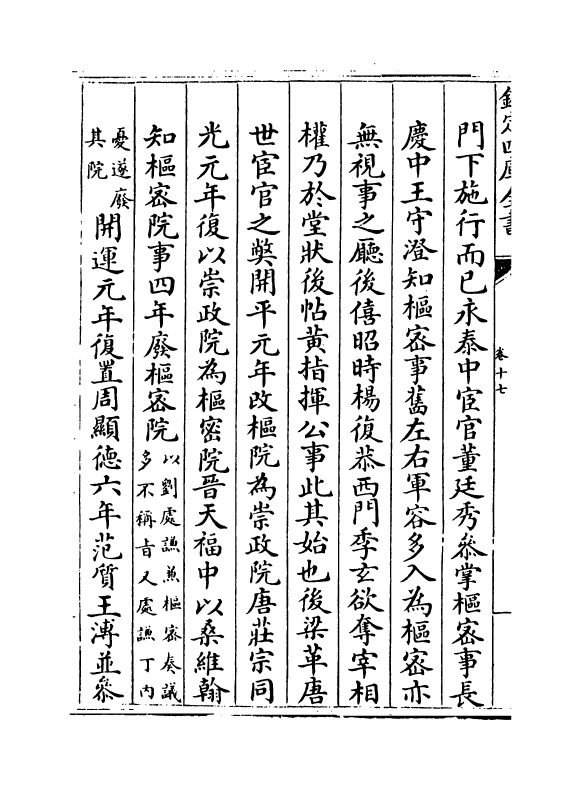 欽定四庫全書
卷十七
門下施行而已永泰中宦官董廷秀叅掌樞宻事長
慶中王守澄知樞宻事舊左右軍容多入為樞宻亦
無視事之廳後僖昭時楊復恭西門季玄欲奪宰相
權乃於堂狀後帖黄指揮公事此其始也後梁革唐
世宦官之弊開平元年改樞院為崇政院唐莊宗同
光元年復以崇政院為樞密院晉天福中以桑維翰
知樞宻院事四年廢樞宻院以劉處讓兼樞宻奏議多不稱旨又處讓丁内
憂遂廢其院開運元年復置周顯德六年范質王溥並叅